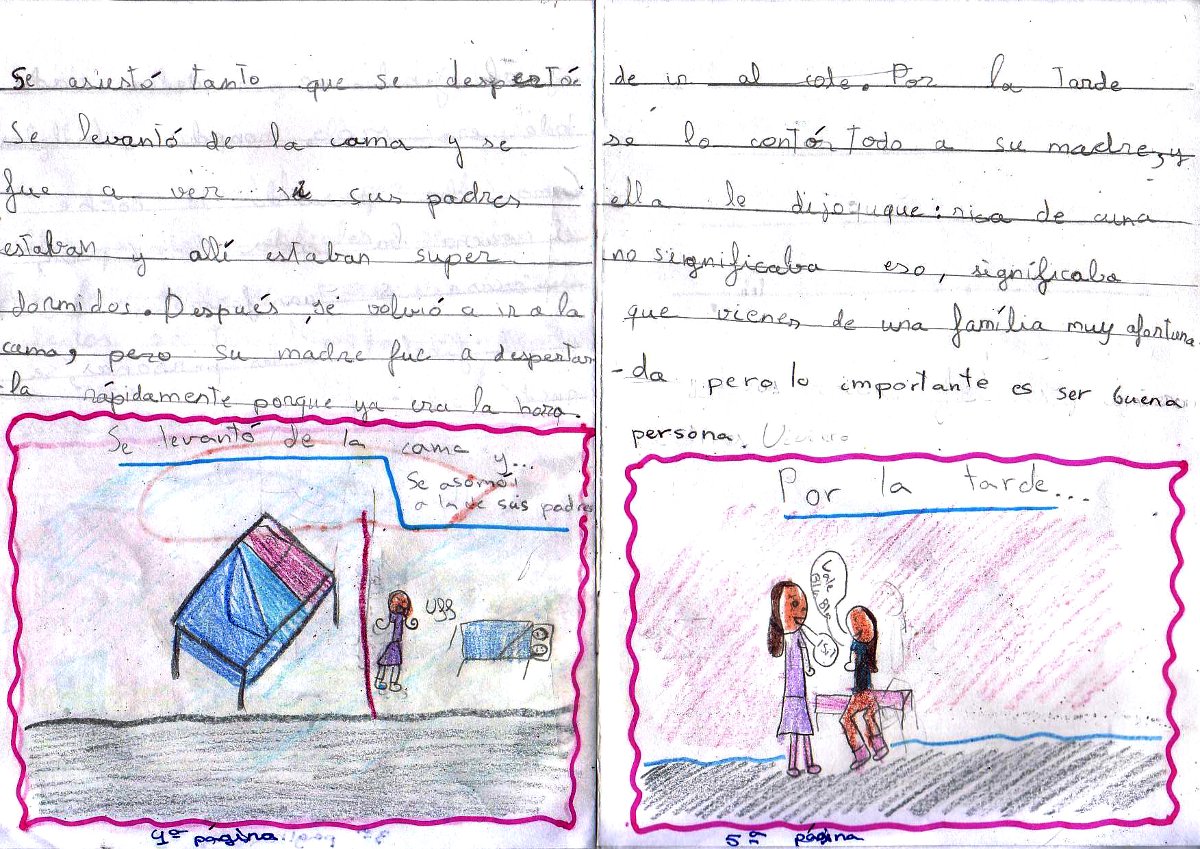 Se asustó tanto que se despertó
Se levantó de la cama y se
fue a ver si sus padres
estaban y allí estaban super
dormidos. Después, se volvió a ir a la
cama, pero su madre fue a despertar
la rápidamente porque ya era la hora.
Se levantó de la cama y...
Se asomó
a la de sus padres
Uff
4ª página
de ir al cole. Por la tarde
se lo contó todo a su madre, y
ella le dijo que: rica de cuna
no significaba eso, significaba
que vienes de una família muy afortuna
-da pero lo importante es ser buena
persona.
Por la tarde...
Vale
Bla Bla
Sí!
5ª página